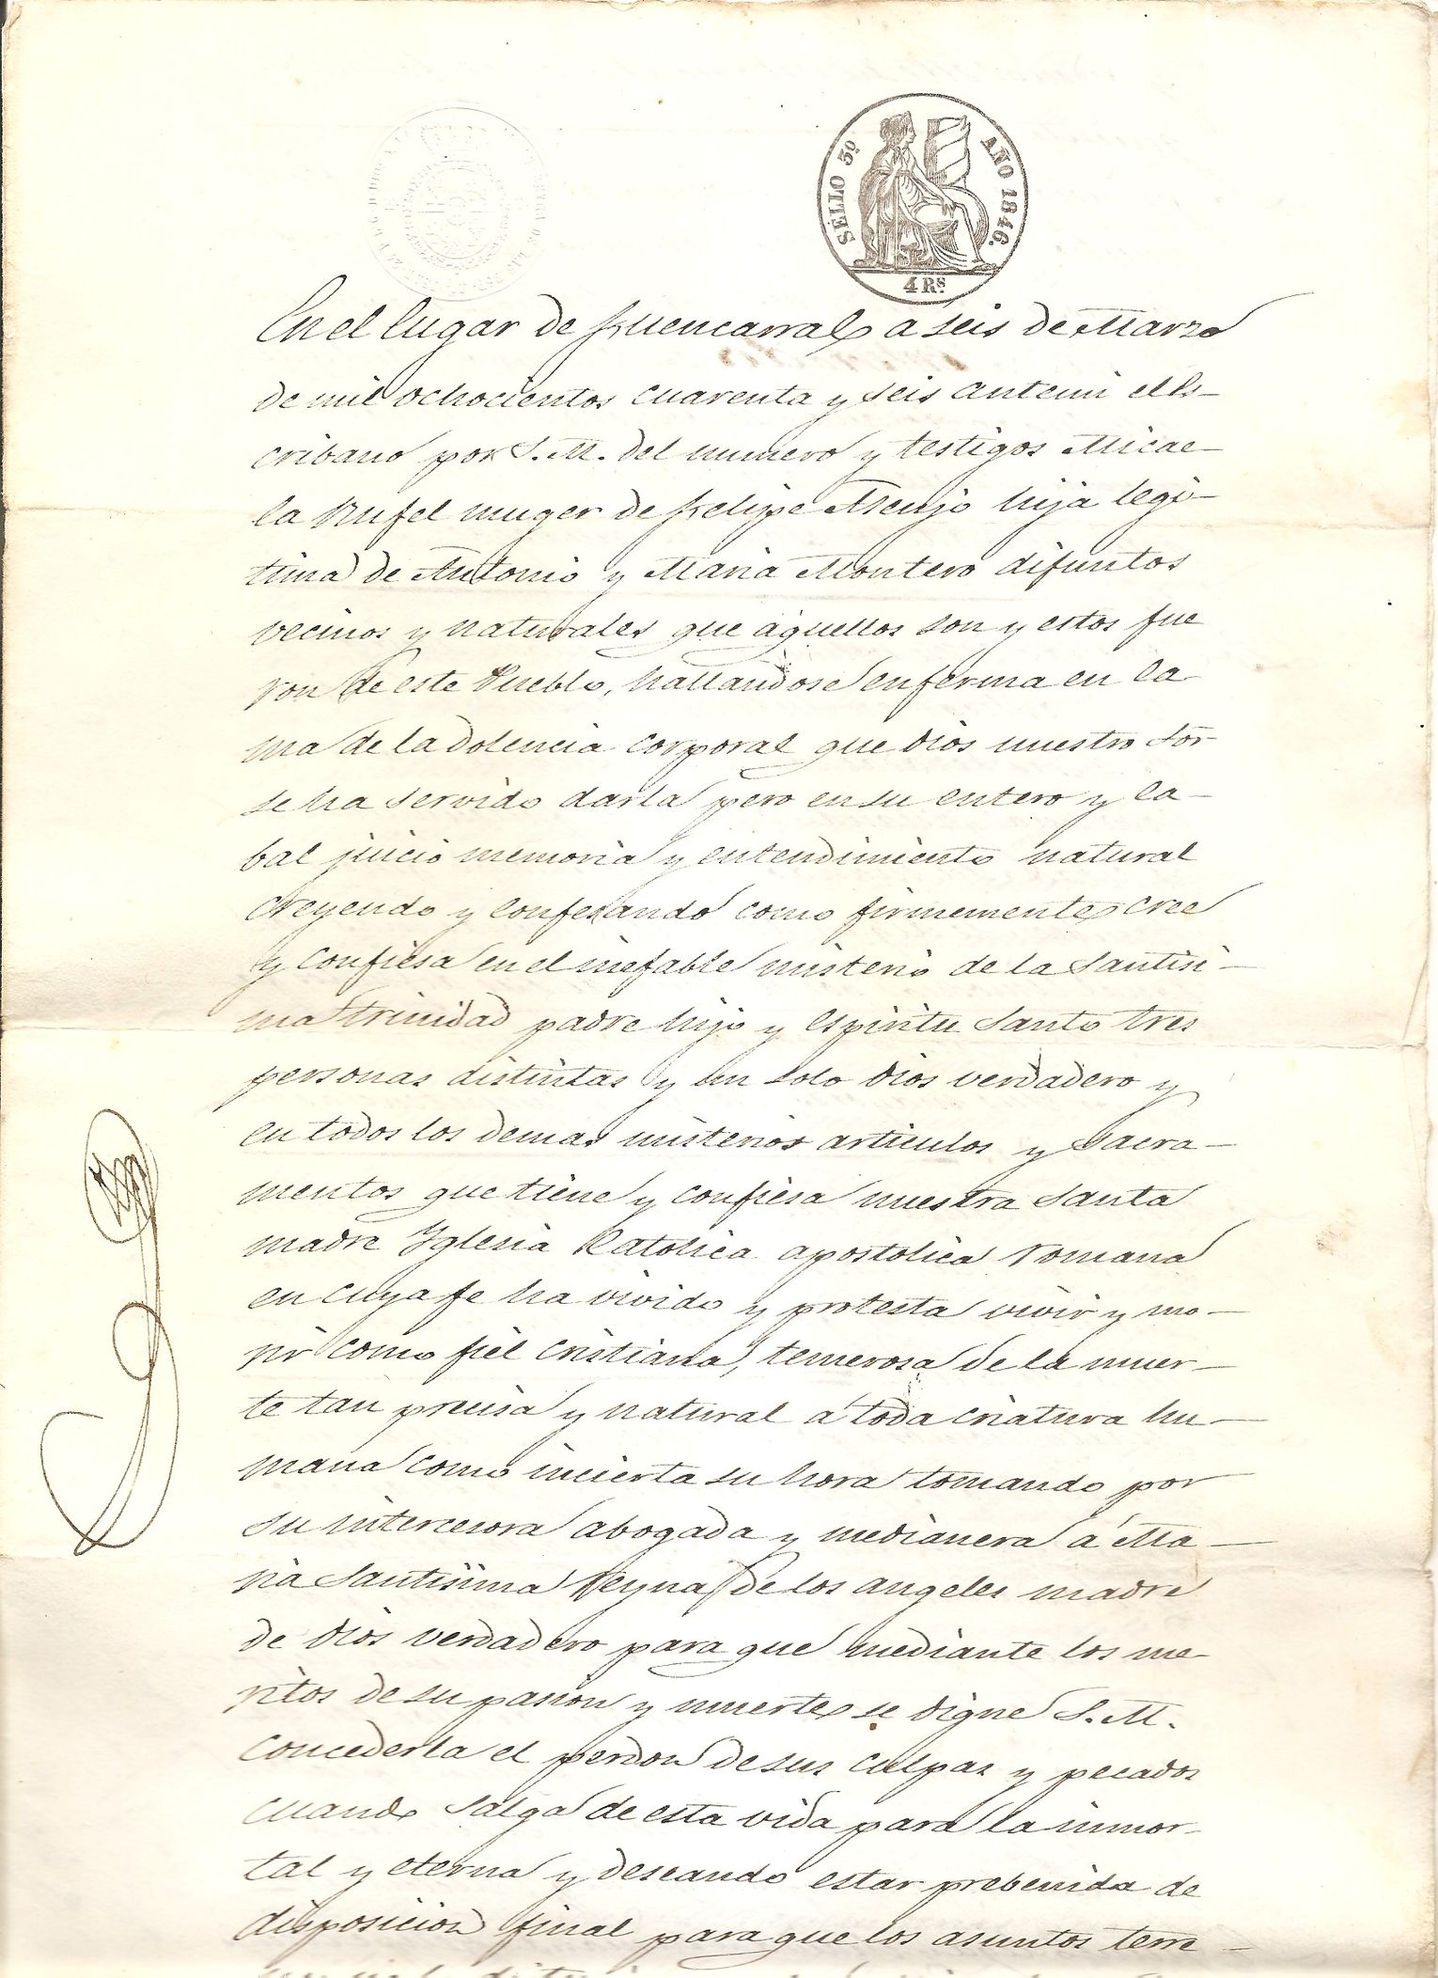 SELLO 3º AÑO 1846.
4 Rs
En el lugar de Fuencarral a seis de Marzo
de mil ochocientos cuarenta y seis antemi el Es-
cribano por S. M. del numero y testigos Micae-
la Rufel muger de Felipe Asenjo hija legi-
tima de Antonio y Maria Montero difuntos
vecinos y naturales que aquellos son y estos fue
ron de este Pueblo, hallandose enferma en ca
ma de la dolencia corporal que Dios nuestro Sor
se ha servido darla pero en su entero y ca-
bal juicio memoria y entendimiento natural
creyendo y confesando como firmemente cree
y confiesa en el inefable misterio de la Santisi-
ma trinidad padre hijo y espiritu Santo tres
personas distintas y un solo Dios verdadero y
en todos los demas misterios articulos y Sacra-
mentos que tiene y confiesa nuestra Santa
madre Yglesia Katolica apostolica romana
en cuya fe ha vivido y protesta vivir y mo-
rir como fiel cristiana, temerosa de la muer-
te tan precisa y natural a toda criatura hu-
mana como incierta su hora tomando por
su intercesora abogada y medianera á Ma-
ria Santisima Reyna de los angeles madre
de Dios verdadero para que mediante los me-
ritos de su pasion y muerte se digne S. M.
concederla el perdon de sus culpas y pecados
cuando salga de esta vida para la inmor-
tal y eterna y deseando estar prebenida de
disposicion final para que los asuntos terre-